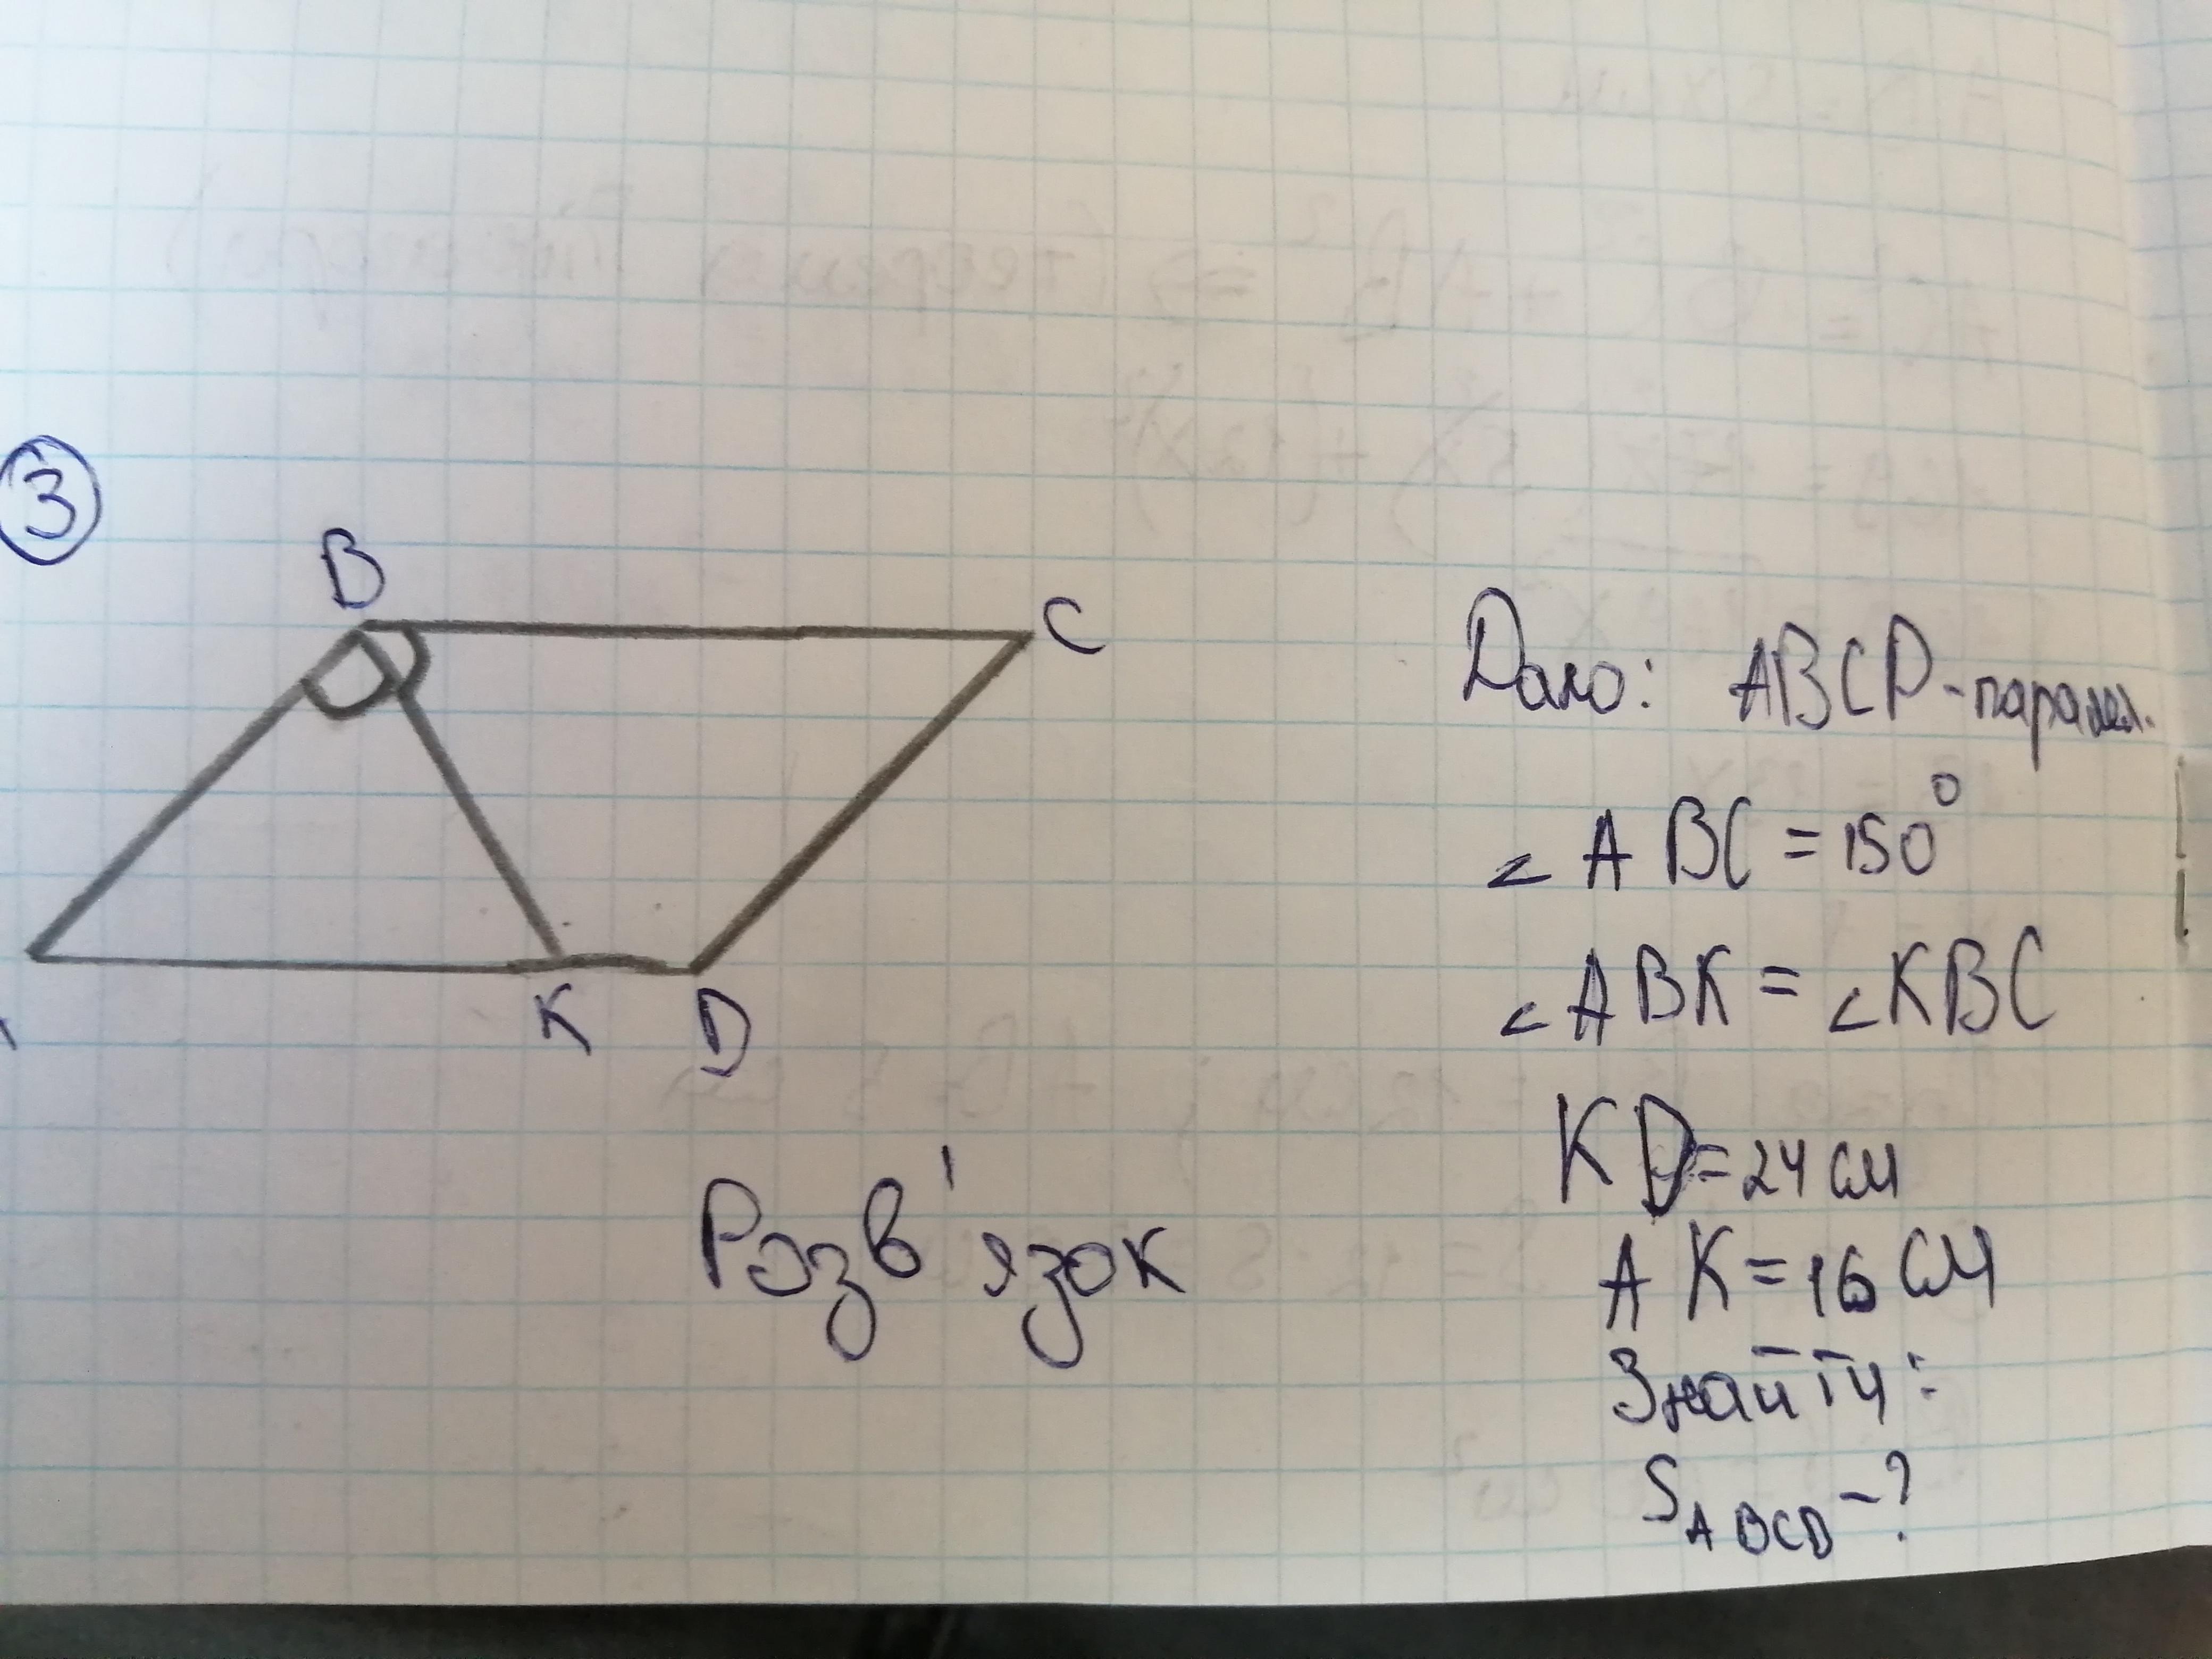 3
B
C
K
D
Дано: ABCD-парал.
∠ABC = 150°
∠ABK = ∠KBC
KD = 24 см
AK = 16 см
Знайти:
S ABCD - ?
Розв'язок